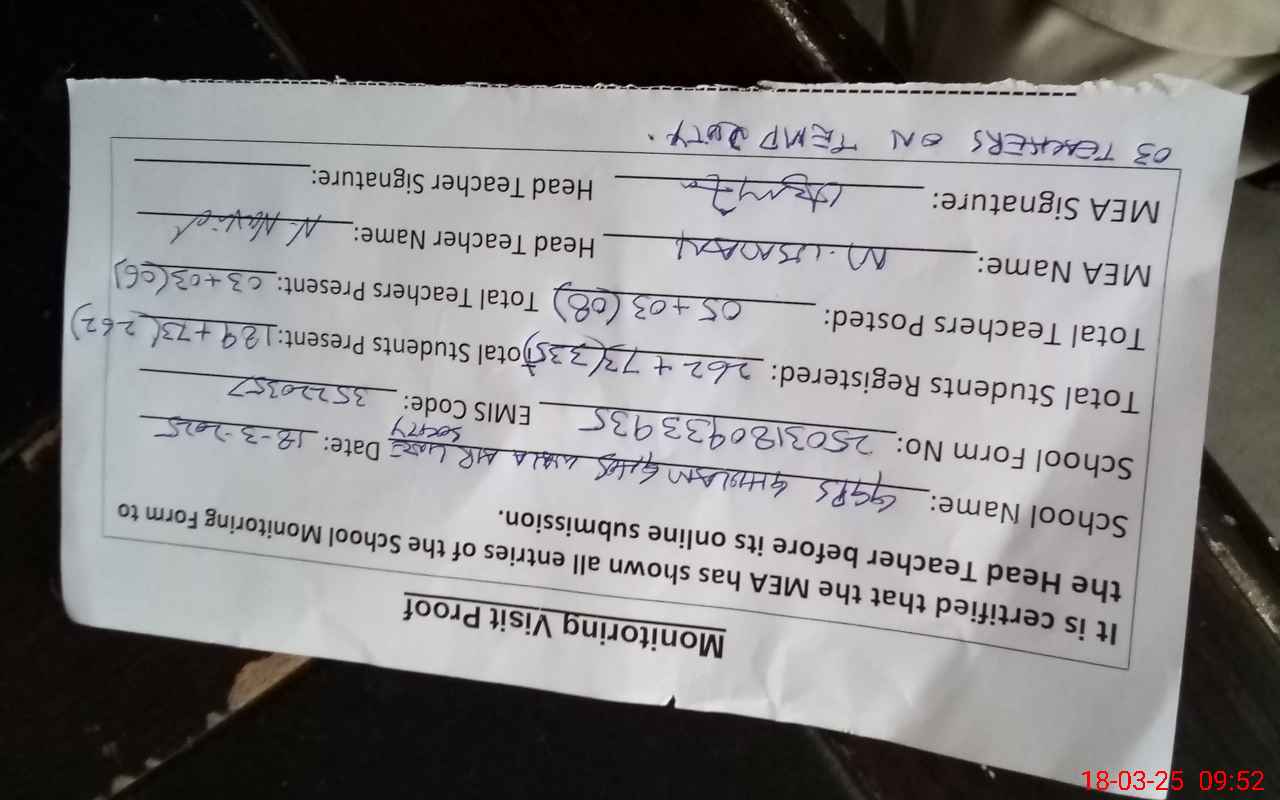 Monitoring Visit Proof
It is certified that the MEA has shown all entries of the School Monitoring Form to
the Head Teacher before its online submission.
School Name: GGPS GHULAM WALA AIR LINE SOCITY Date: 18-3-2025
School Form No: 2503180933935 EMIS Code: 35220357
Total Students Registered: 262 + 73 (335) Total Students Present: 189 + 73 (262)
Total Teachers Posted: 05 + 03 (08) Total Teachers Present: 03 + 03 (06)
MEA Name: M. USMAN Head Teacher Name: N. Navid
MEA Signature: Head Teacher Signature:
03 TEACHERS ON TEMP DUTY.
18-03-25 09:52